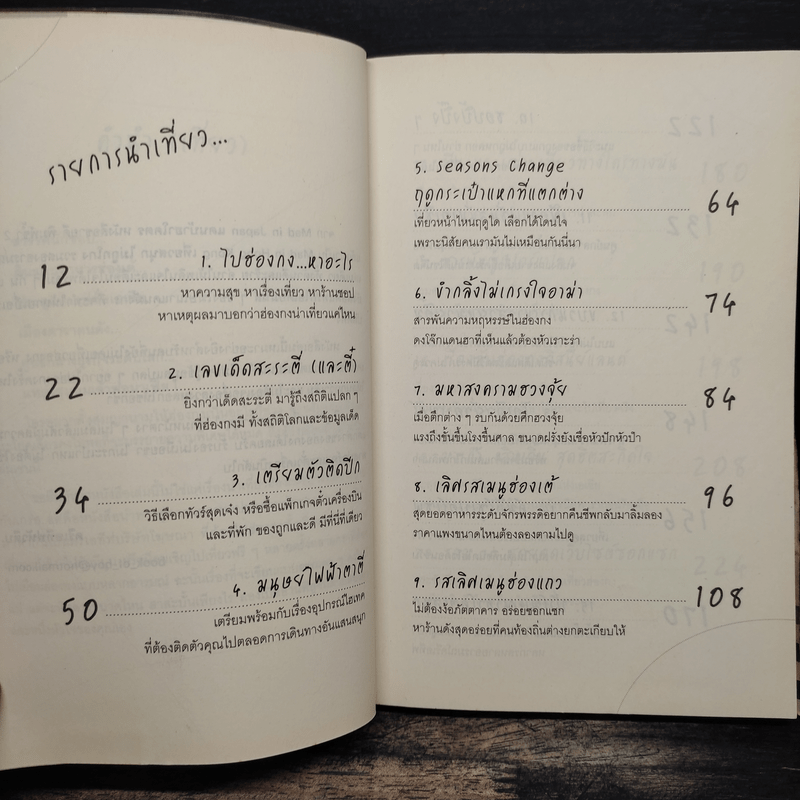 รายการนำเที่ยว...
12
1. ไปฮ่องกง...หาอะไร
หาความสุข หาเรื่องเที่ยว หาร้านชอป
หาเหตุผลมาบอกว่าฮ่องกงน่าเที่ยวแค่ไหน
22
2. เลขเด็ดสะระตี่ (และตี๋)
ยิ่งกว่าเด็ดสะระตี่ มารู้ถึงสถิติแปลก ๆ
ที่ฮ่องกงมี ทั้งสถิติโลกและข้อมูลเด็ด
34
3. เตรียมตัวติดปีก
วิธีเลือกทัวร์สุดเจ๋ง หรือซื้อแพ็กเกจตั๋วเครื่องบิน
และที่พัก ของถูกและดี มีที่นี่ที่เดียว
50
4. มนุษย์ไฟฟ้าตาตี่
เตรียมพร้อมกับเรื่องอุปกรณ์ไฮเทค
ที่ต้องติดตัวคุณไปตลอดการเดินทางอันแสนสนุก
5. Seasons Change
ฤดูกระเป๋าแหกที่แตกต่าง
64
เที่ยวหน้าไหนฤดูใด เลือกได้โดนใจ
เพราะนิสัยคนเรามันไม่เหมือนกันนี่นา
6. ขำกลิ้งไม่เกรงใจอาม่า
74
สารพันความหฤหรรษ์ในฮ่องกง
ดงโจ๊กแดนฮาที่เห็นแล้วต้องหัวเราะร่า
7. มหาสงครามฮวงจุ้ย
84
เมื่อตึกต่าง ๆ รบกันด้วยศึกฮวงจุ้ย
แรงถึงขั้นขึ้นโรงขึ้นศาล ขนาดฝรั่งยังเชื่อหัวปักหัวปำ
8. เลิศรสเมนูฮ่องเต้
96
สุดยอดอาหารระดับจักรพรรดิอยากคืนชีพกลับมาลิ้มลอง
ราคาแพงขนาดไหนต้องลองตามไปดู
9. รสเลิศเมนูฮ่องแถว
108
ไม่ต้องง้อภัตตาคาร อร่อยซอกแซก
หาร้านดังสุดอร่อยที่คนท้องถิ่นต่างยกตะเกียบให้